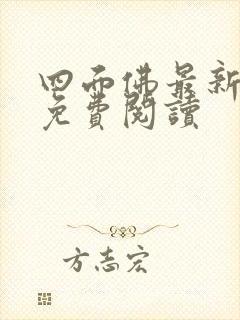 四面佛最新
免費閱讀
方志宏